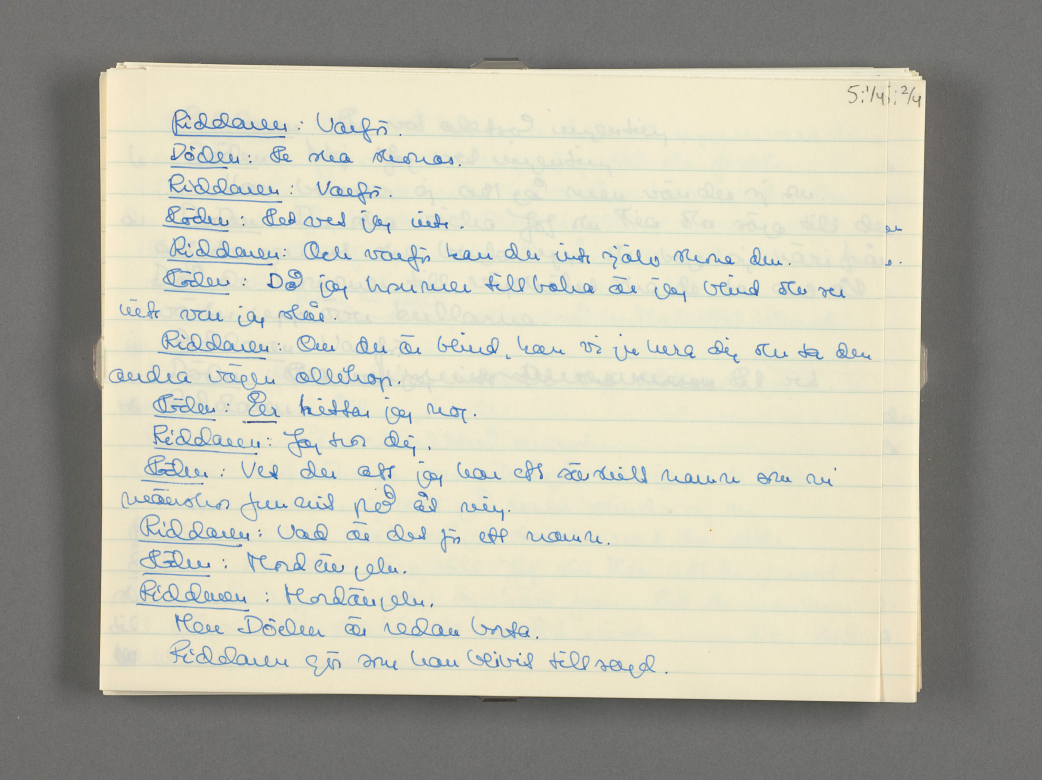 5:1/4; 2/4
Riddaren: Varför.
Döden: De ska skonas.
Riddaren: Varför.
Döden: Det vet jag inte.
Riddaren: Och varför kan du inte själv skona dem.
Döden: Då jag kommer tillbaka är jag blind och ser
inte var jag slår.
Riddaren: Om du är blind, kan vi ju lura dig och ta den
andra vägen allihop.
Döden: Er hittar jag nog.
Riddaren: Jag tror dig.
Döden: Vet du att jag har ett särskilt namn som ni
människor funnit på åt mig.
Riddaren: Vad är det för ett namn.
Döden: Mordängeln.
Riddaren: Mordängeln.
Men Döden är redan borta.
Riddaren gör som han blivit tillsagd.